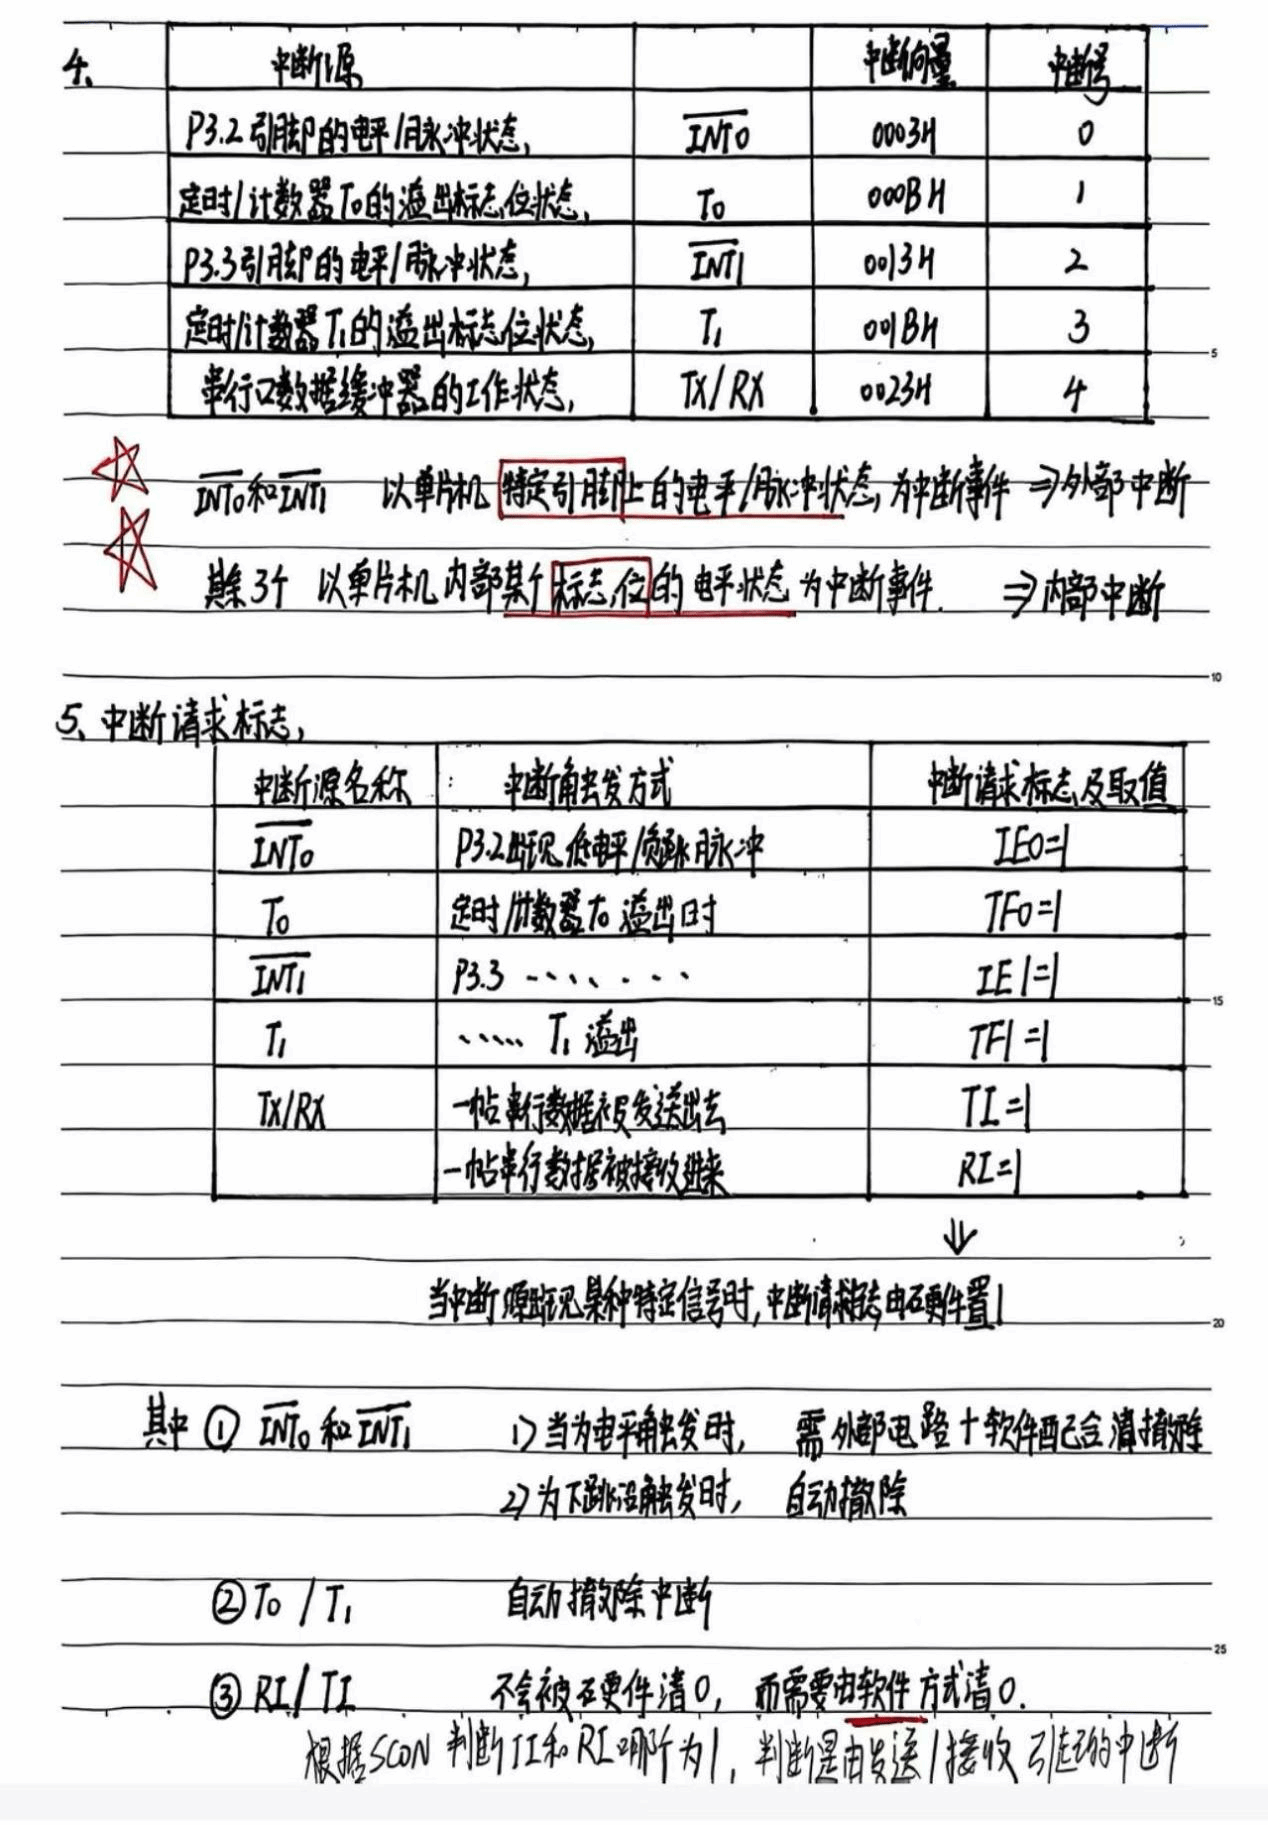 4、 中断源 中断向量 中断号
P3.2引脚的电平/脉冲状态 INT0 0003H 0
定时/计数器T0的溢出标志位状态 T0 000BH 1
P3.3引脚的电平/脉冲状态 INT1 0013H 2
定时/计数器T1的溢出标志位状态 T1 001BH 3
5
串行口数据缓冲器的工作状态 TX/RX 0023H 4
INT0和INT1 以单片机特定引脚上的电平/脉冲状态为中断事件 ⇒外部中断
其余3个 以单片机内部某个标志位的电平状态为中断事件. ⇒内部中断
10
5、中断请求标志
中断源名称 中断触发方式 中断请求标志及取值
INT0 P3.2出现低电平/负跳脉冲 IE0=1
T0 定时/计数器T0溢出时 TF0=1
INT1 P3.3 ....... IE1=1
15
T1 ..... T1溢出 TF1=1
TX/RX 一帖串行数据被发送出去 TI=1
一帖串行数据被接收进来 RI=1
↓
当中断源出现某种特定信号时,中断请求标志由硬件置1
20
其中 ① INT0和INT1 1)当为电平触发时, 需外部电路+软件配合清撤除
2)为下跳沿触发时, 自动撤除
② T0 / T1 自动撤除中断
25
③ RI/TI 不会被硬件清0, 而需要由软件方式清0.
根据SCON 判断TI和RI哪个为1, 判断是由发送/接收引起的中断